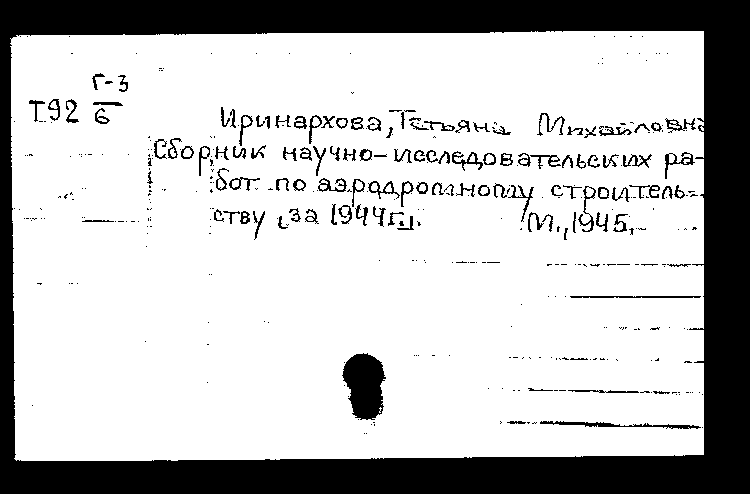 Г-3
Т92 6
Иринархова, Тетьяна Михайловна
Сборник научно-исследовательских ра-
бот по аэродромному строитель-
ству за 1944г.
М., 1945.